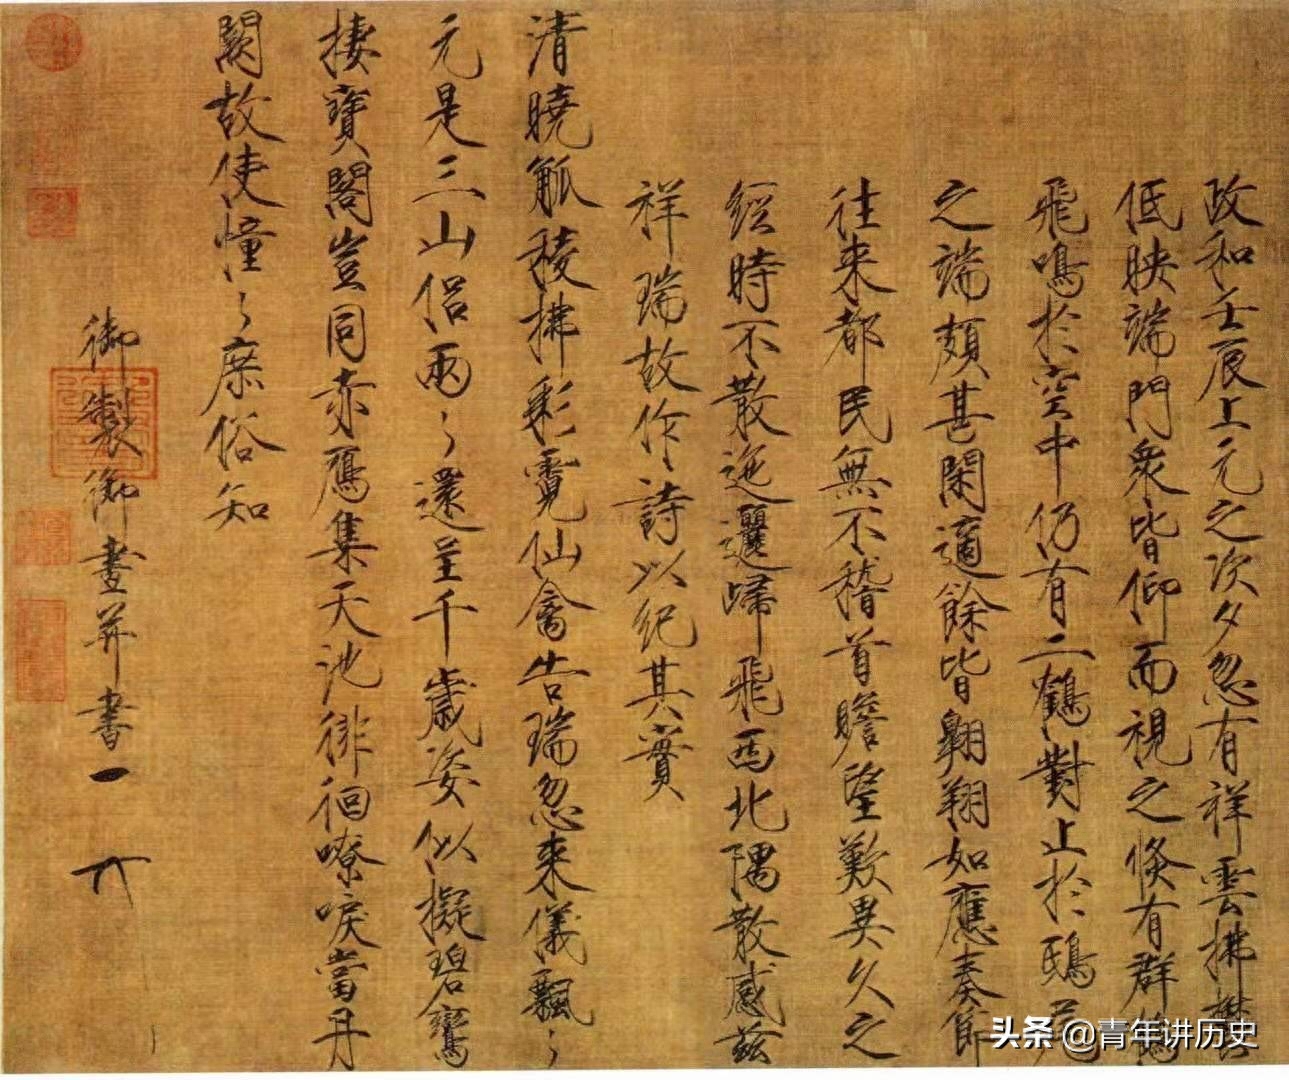 政和壬辰上元之次夕忽有祥雲拂鬱
低映端門衆皆仰而視之倐有群鶴
飛鳴於空中仍有二鶴對止於鴟尾
之端頗甚閑適餘皆翺翔如應奏節
往来都民無不稽首瞻望歎異久之
經時不散迤邐歸飛西北隅散感兹
祥瑞故作詩以紀其實
清曉觚稜拂彩霓仙禽告瑞忽来儀飄〻
元是三山侶兩〻還呈千歲姿似擬碧鸞
棲寶閣豈同赤鴈集天池徘徊嘹唳當丹
闕故使憧〻庶俗知
御製御畫并書
头条 @青年讲历史